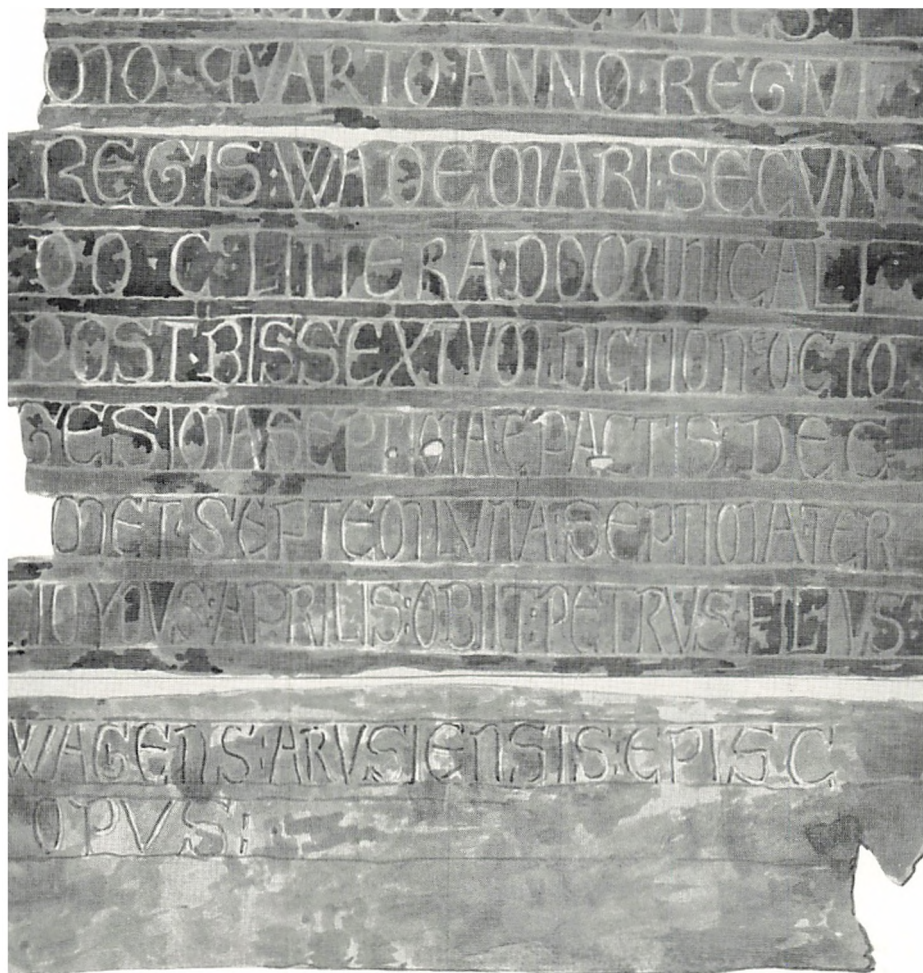 MO·QVARTO·ANNO·REGNI
REGIS·WADEMARI·SECVN
DO·C·LITTERA·DOMINICALI
POST·BISSEXTVM·INDICTIONE·OCTO
GESIMA SEPTIMA EPACTIS·DEC
MET·SEPTEM LVNA SEPTIMA TER
TIO YDVS·APRILIS:OBIIT:PETRVS:FILIVS·
WAGENS·ARVSIENSIS·EPISC
OPVS: